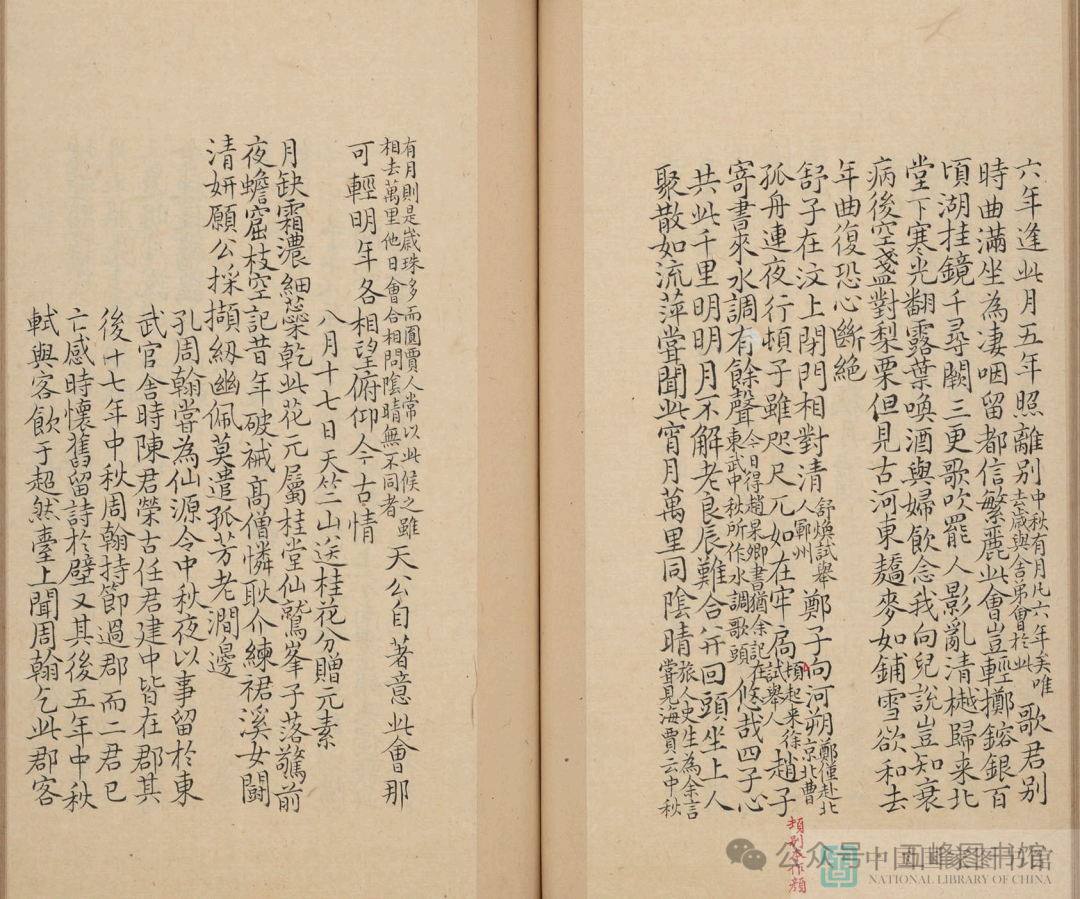 六年逢此月五年照離別中秋有月凡六年矣唯去歲與舍弟會於此歌君別
時曲滿坐為凄咽留都信繁麗此會豈輕擲鎔銀百
頃湖挂鏡千尋闕三更歌吹罷人影亂清樾歸來北
堂下寒光翻露葉喚酒與婦飲念我向兒說豈知衰
病後空盞對梨栗但見古河東蕎麥如鋪雪欲和去
年曲復恐心斷絶
舒子在汶上閉門相對清舒煥試舉人鄆州鄭子向河朔鄭僅赴北京北曹
孤舟連夜行頓子雖咫尺兀如在牢扃頓起來徐試舉人趙子
寄書來水調有餘聲今日得趙杲卿書猶余記在東武中秋所作水調歌頭悠哉四子心
共此千里明明月不解老良辰難合并回頭坐上人
聚散如流萍嘗聞此宵月萬里同陰晴旅人史生為余言嘗見海賈云中秋
有月則是歲珠多而圓賈人常以此候之雖相去萬里他日會合相問陰晴無不同者天公自著意此會那
可輕明年各相望俯仰今古情
八月十七日天竺山送桂花分贈元素
月缺霜濃細蘂乾此花元屬桂堂仙鷲峯子落驚前
夜蟾窟枝空記昔年破裓髙僧憐耿介練裙溪女鬪
清妍願公採擷紉幽佩莫遣孤芳老澗邊
孔周翰嘗為仙源令中秋夜以事留於東
武官舍時陳君榮古任君建中皆在郡其
後十七年中秋周翰持節過郡而二君已
亡感時懷舊留詩於壁又其後五年中秋
軾與客飲于超然臺上聞周翰乞此郡客
公众号·五峰图书馆
中国国家图书馆
NATIONAL LIBRARY OF CHINA